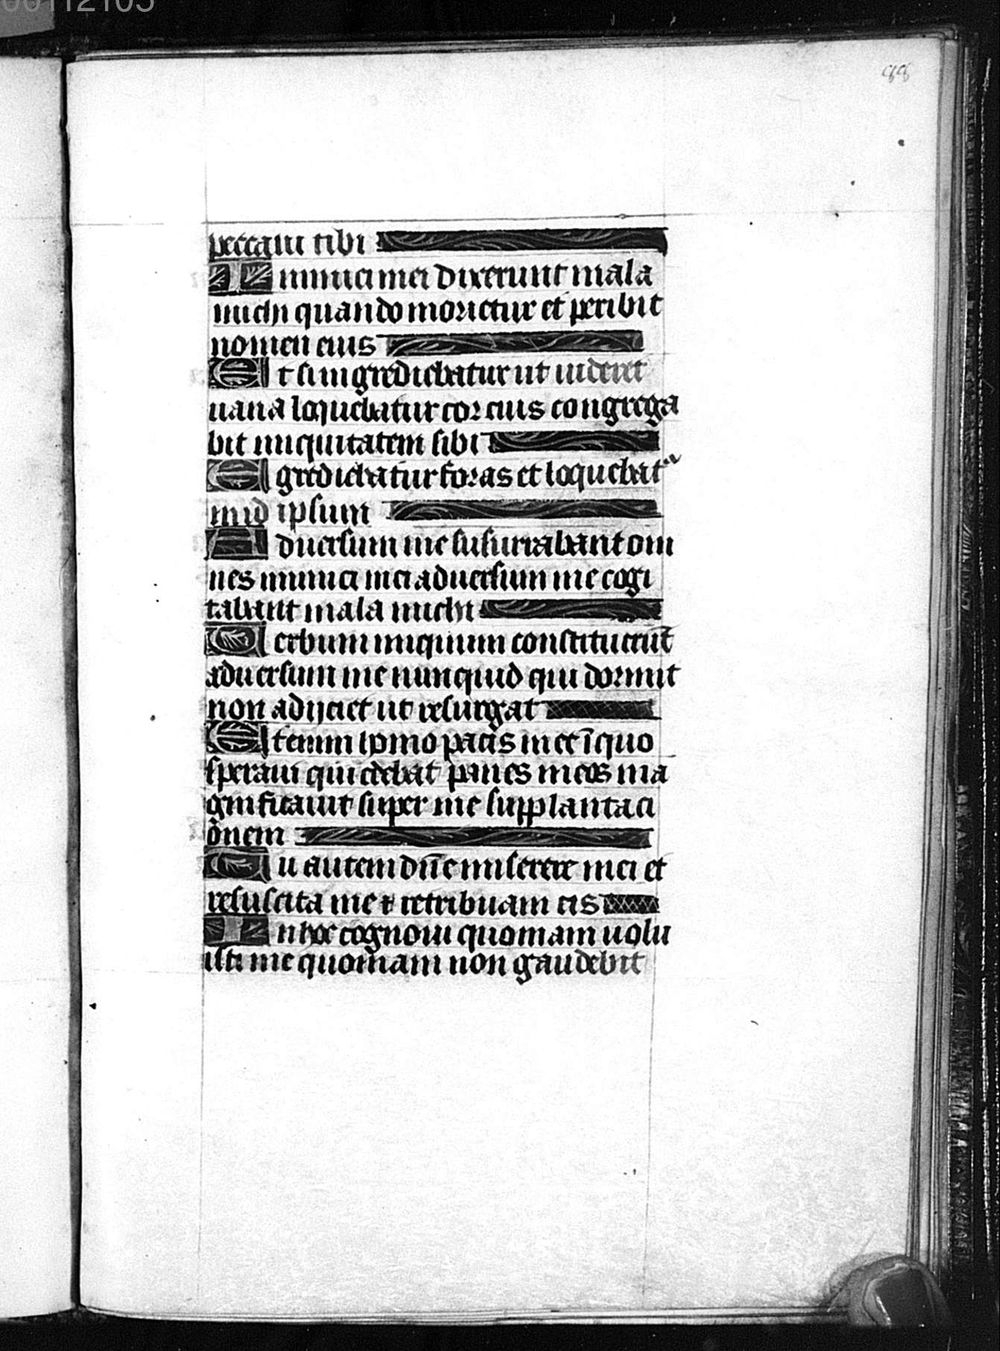 88
peccaui tibi
Inimici mei dixerunt mala
michi quando morietur et peribit
nomen eius
Et si ingrediebatur ut uideret
uana loquebatur cor eius congrega
bit iniquitatem sibi
Egrediebatur foras et loquebat᷑
in id ipsum
Aduersum me susurrabant om
nes inimici mei aduersum me cogi
tabant mala michi
Uerbum iniquum constituerūt
aduersum me nunquid qui dormit
non adijciet ut resurgat
Etenim homo pacis mee ī quo
speraui qui edebat panes meos ma
gnificauit super me supplantaci
onem
Tu autem dn̄e miserere mei et
resuscita me ⁊ retribuam eis
In hoc cognoui quoniam uolu
isti me quoniam non gaudebit